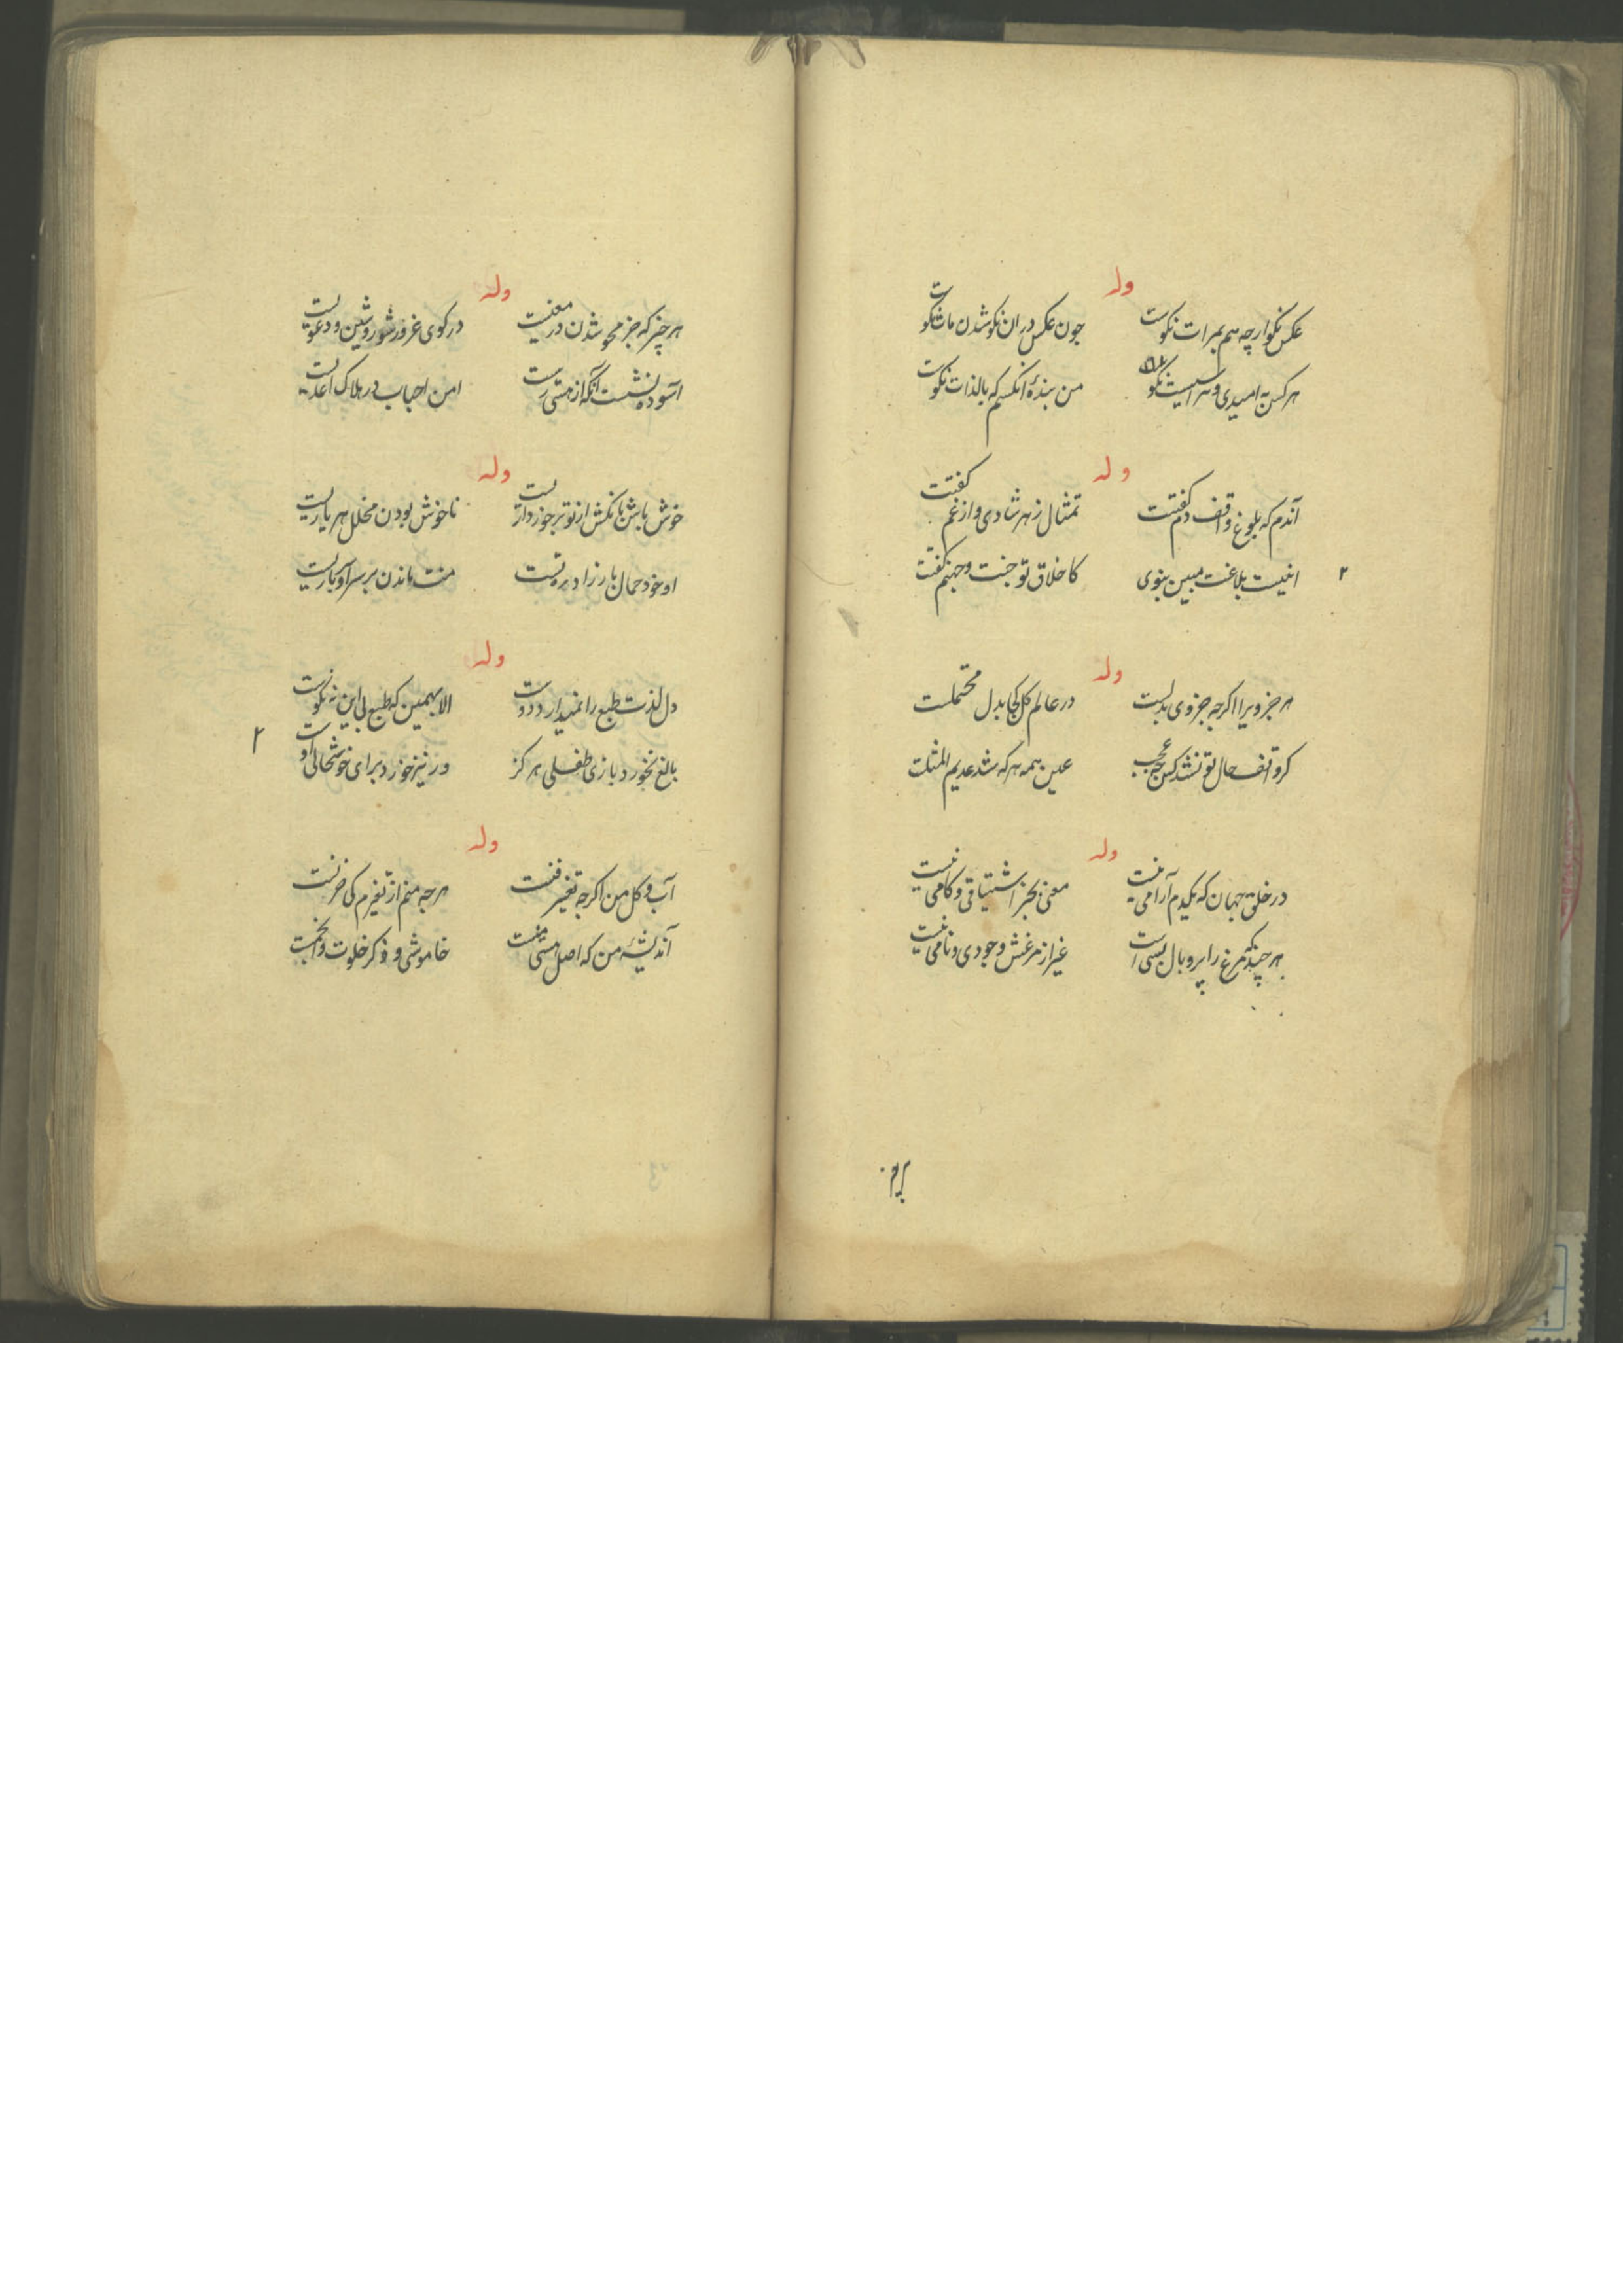 وله
عکس نکو ارچه هم بمرات نکوست
چون عکس در ان نکو شدن مات نکوست
هرکس به امیدی و هراسیست نکو
من بندهٔ انکسم که بالذات نکوست
وله
آندم که بلوغ واقف دم کفتت
تمثال زهر شادی و از غم کفتت
اینست بلاغت مبین بنوی
۲
کاخلاق تو جنت و جهنم کفتت
وله
هر جزویرا اکرچه جزوی بدلست
در عالم کل کجا بدل محتملست
کر واقف حال تو نشد کس چه عجب
عین همه هرکه شد عدیم المثلت
وله
در خلق جهان که یکدم آرامی نیست
معنی بجز اشتیاقی و کامی نیست
هر چند که مرغ را پر و بال بسی است
غیر از مرغش وجودی و نامی نیست
وله
هر چیز که جز محو شدن در معنیست
در کوی غرور شور و شین و دعویست
آسوده نشست آنکه از هستی رست
امن احباب در هلاک اعدیست
وله
خوش باش بانکش از تو برخوردارست
ناخوش بودن مخلل هر یاریست
او خود حمال بار زاد ره تست
منت ماندن بر سر او باریست
وله
دل لذت طبع را نمیدارد دوست
الا بهمین که طبع بی این نه نکوست
بالغ نخورد بازی طفلی هرکز
ور نیز خورد برای خوشحالی اوست
۲
وله
آب و کل من اکرچه تغییر فنست
هرچه منم از تغیرم کی حزنست
آندیشهٔ من که اصل هستی منست
خاموشی و ذکر خلوت و انجمنست